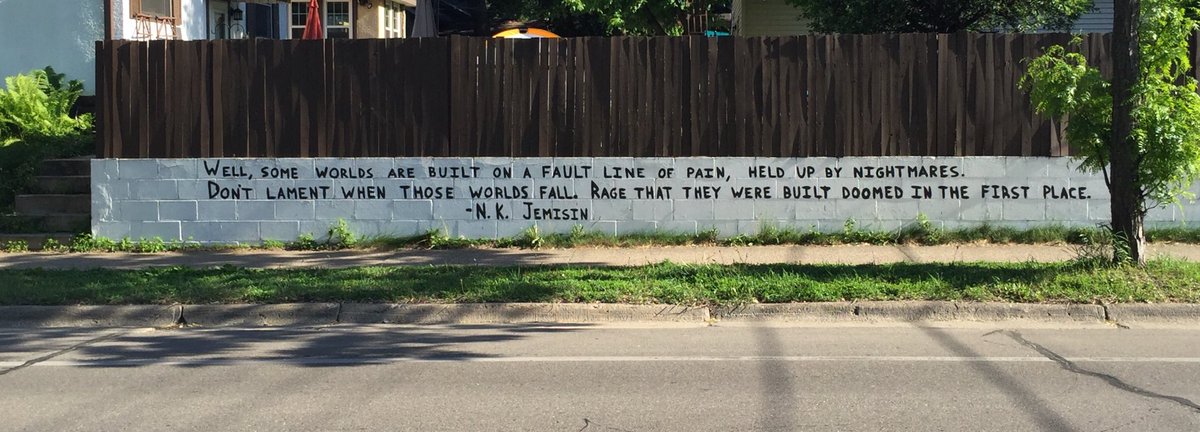 WELL, SOME WORLDS ARE BUILT ON A FAULT LINE OF PAIN, HELD UP BY NIGHTMARES.
DON'T LAMENT WHEN THOSE WORLDS FALL. RAGE THAT THEY WERE BUILT DOOMED IN THE FIRST PLACE.
-N. K. JEMISIN